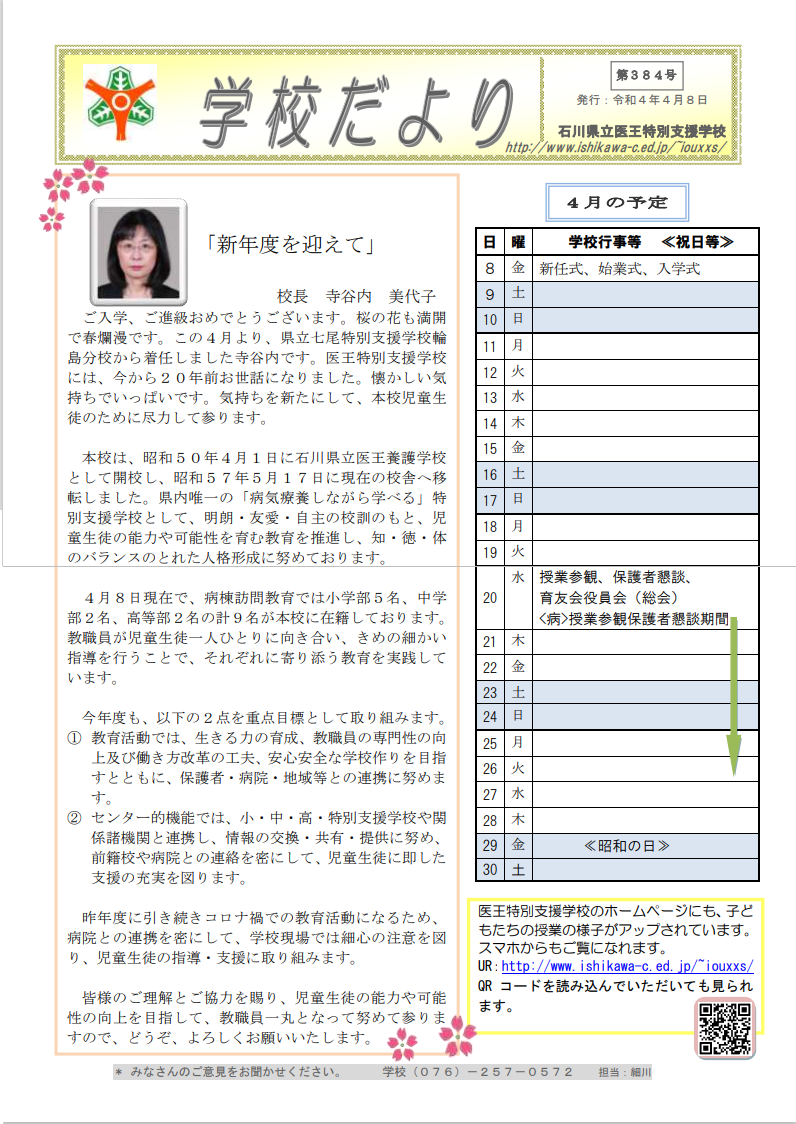 学校だより
第３８４号
発行：令和４年４月８日
石川県立医王特別支援学校
http://www.ishikawa-c.ed.jp/~iouxxs/
「新年度を迎えて」
校長　寺谷内　美代子
ご入学、ご進級おめでとうございます。桜の花も満開
で春爛漫です。この４月より、県立七尾特別支援学校輪
島分校から着任しました寺谷内です。医王特別支援学校
には、今から２０年前お世話になりました。懐かしい気
持ちでいっぱいです。気持ちを新たにして、本校児童生
徒のために尽力して参ります。
本校は、昭和５０年４月１日に石川県立医王養護学校
として開校し、昭和５７年５月１７日に現在の校舎へ移
転しました。県内唯一の「病気療養しながら学べる」特
別支援学校として、明朗・友愛・自主の校訓のもと、児
童生徒の能力や可能性を育む教育を推進し、知・徳・体
のバランスのとれた人格形成に努めております。
４月８日現在で、病棟訪問教育では小学部５名、中学
部２名、高等部２名の計９名が本校に在籍しております。
教職員が児童生徒一人ひとりに向き合い、きめの細かい
指導を行うことで、それぞれに寄り添う教育を実践して
います。
今年度も、以下の２点を重点目標として取り組みます。
① 教育活動では、生きる力の育成、教職員の専門性の向
上及び働き方改革の工夫、安心安全な学校作りを目指
すとともに、保護者・病院・地域等との連携に努めま
す。
② センター的機能では、小・中・高・特別支援学校や関
係諸機関と連携し、情報の交換・共有・提供に努め、
前籍校や病院との連絡を密にして、児童生徒に即した
支援の充実を図ります。
昨年度に引き続きコロナ禍での教育活動になるため、
病院との連携を密にして、学校現場では細心の注意を図
り、児童生徒の指導・支援に取り組みます。
皆様のご理解とご協力を賜り、児童生徒の能力や可能
性の向上を目指して、教職員一丸となって努めて参りま
すので、どうぞ、よろしくお願いいたします。
４月の予定
日 曜 学校行事等　≪祝日等≫
8 金 新任式、始業式、入学式
9 土
10 日
11 月
12 火
13 水
14 木
15 金
16 土
17 日
18 月
19 火
20 水 授業参観、保護者懇談、
育友会役員会（総会）
<病>授業参観保護者懇談期間
21 木
22 金
23 土
24 日
25 月
26 火
27 水
28 木
29 金 ≪昭和の日≫
30 土
医王特別支援学校のホームページにも、子ど
もたちの授業の様子がアップされています。
スマホからもご覧になれます。
UR：http://www.ishikawa-c.ed.jp/~iouxxs/
QR コードを読み込んでいただいても見られ
ます。
* みなさんのご意見をお聞かせください。　学校（０７６）－２５７－０５７２　担当：細川